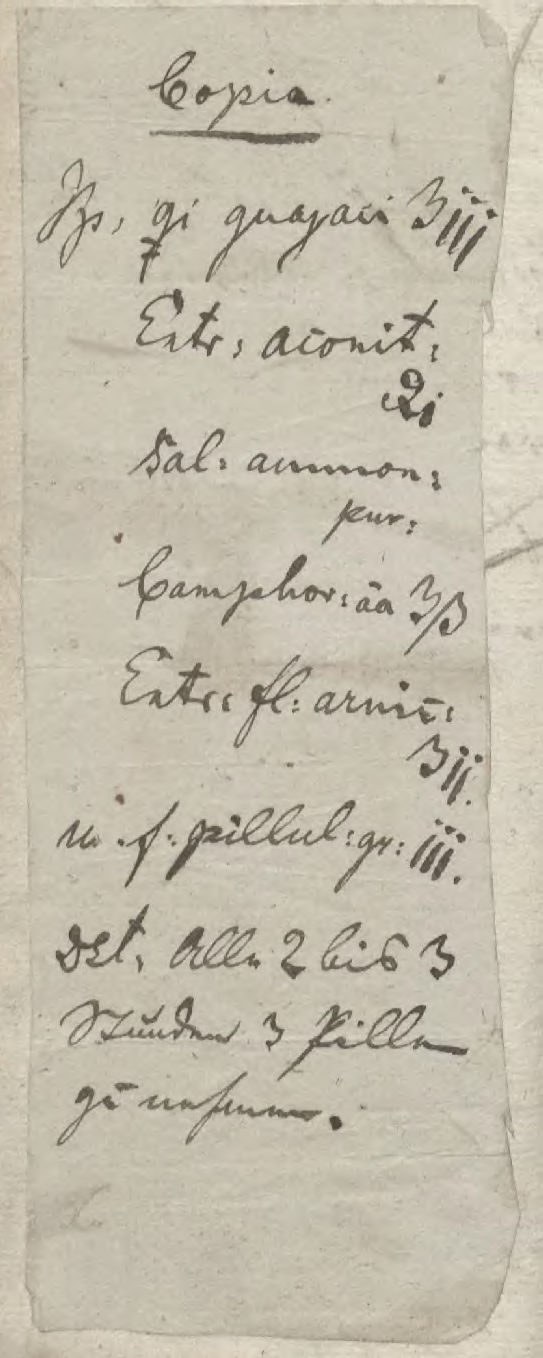 Copia.
Rp, gi guajaci ʒiij
Extr: aconit:
℈i
Sal: ammon:
pur:
Camphor: āā ʒß
Extr: fl: arnic:
ʒij.
m. f. pillul: gr: iij.
DSt, Alle 2 bis 3
Stunden 3 Pillen
zu nehmen.